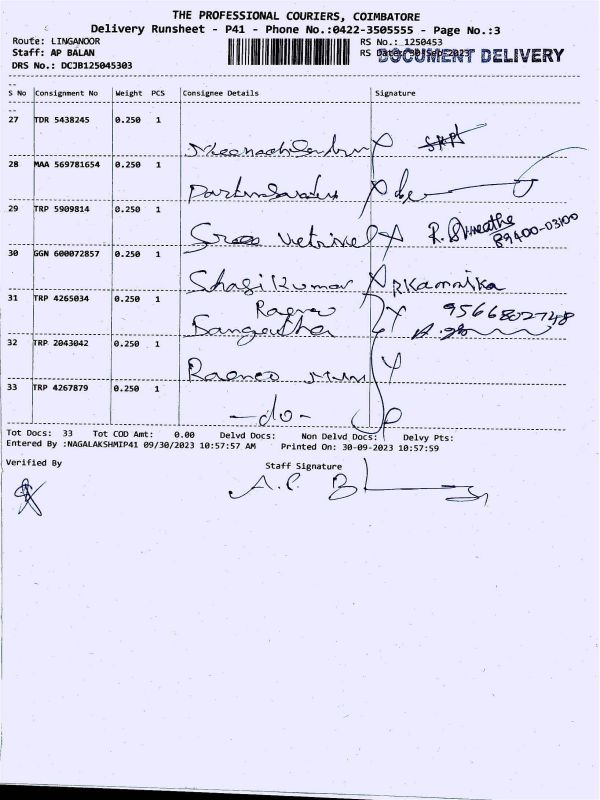 THE PROFESSIONAL COURIERS, COIMBATORE
Delivery Runsheet - P41 - Phone No.:0422-3505555 - Page No.:3
Route: LINGANOOR RS No.: 1250453
Staff: AP BALAN RS Date: 30-Sep-2023 DOCUMENT DELIVERY
DRS No.: DCJB125045303
S No Consignment No Weight PCS Consignee Details Signature
27 TDR 5438245 0.250 1
28 MAA 569781654 0.250 1
29 TRP 5909814 0.250 1
Sree Vetrivel R. 89400-03100
30 GGN 600072857 0.250 1
Shasi Kumar
31 TRP 4265034 0.250 1
Sangeetha 9566802748
32 TRP 2043042 0.250 1
33 TRP 4267879 0.250 1
-do-
Tot Docs: 33 Tot COD Amt: 0.00 Delvd Docs: Non Delvd Docs: Delvy Pts:
Entered By :NAGALAKSHMIP41 09/30/2023 10:57:57 AM Printed On: 30-09-2023 10:57:59
Verified By Staff Signature
A.P.